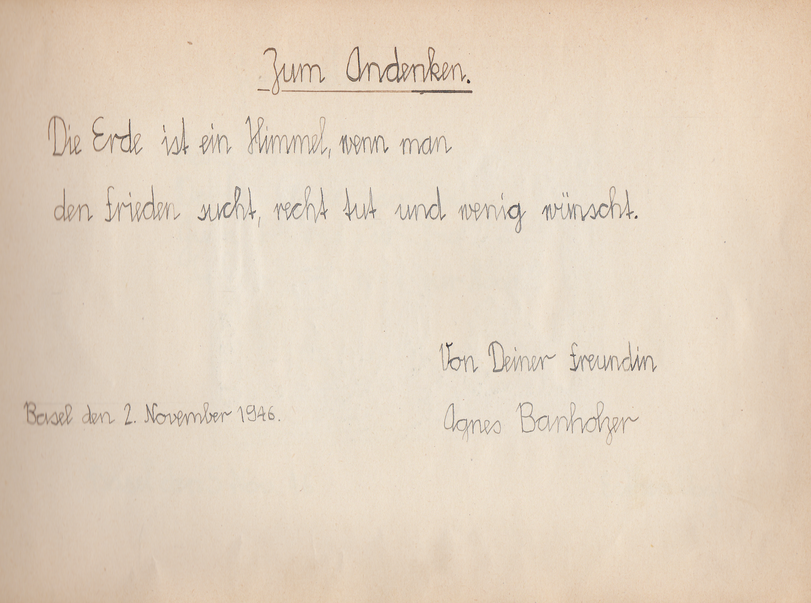 Zum Andenken.
Die Erde ist ein Himmel, wenn man
den frieden sucht, recht tut und wenig wünscht.
Von Deiner freundin
Basel den 2. November 1946.
Agnes Banholzer